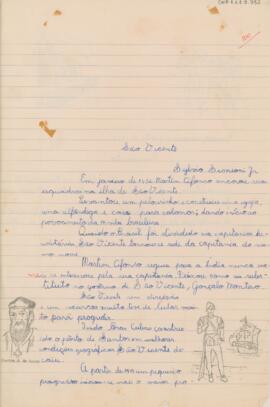 São Vicente
Sylvio Jr
Em janeiro de 1532 Martim Afonso ancorou sua
esquadra na ilha de São Vicente.
Levantou um pelourinho e construiu uma igreja,
uma alfândega e casas para colonos; dando início ao
povoamento da terra brasileira.
Quando o Brasil foi dividido em capitanias he-
reditárias São Vicente tornou-se sede da capitania do mes-
mo nome.
Martim Afonso seguiu para a Índia e nunca
mais se interessou pela sua capitania. Deixou como seu subs-
tituto no governo de São Vicente, Gonçalo Monteiro.
São Vicente em direção
muito teve de lutar
para progredir.
Brás Cubas construiu
o pôrto de Santos em melhores
condições geográficas São Vicente de-
caiu.
A partir de um pequeno
progresso